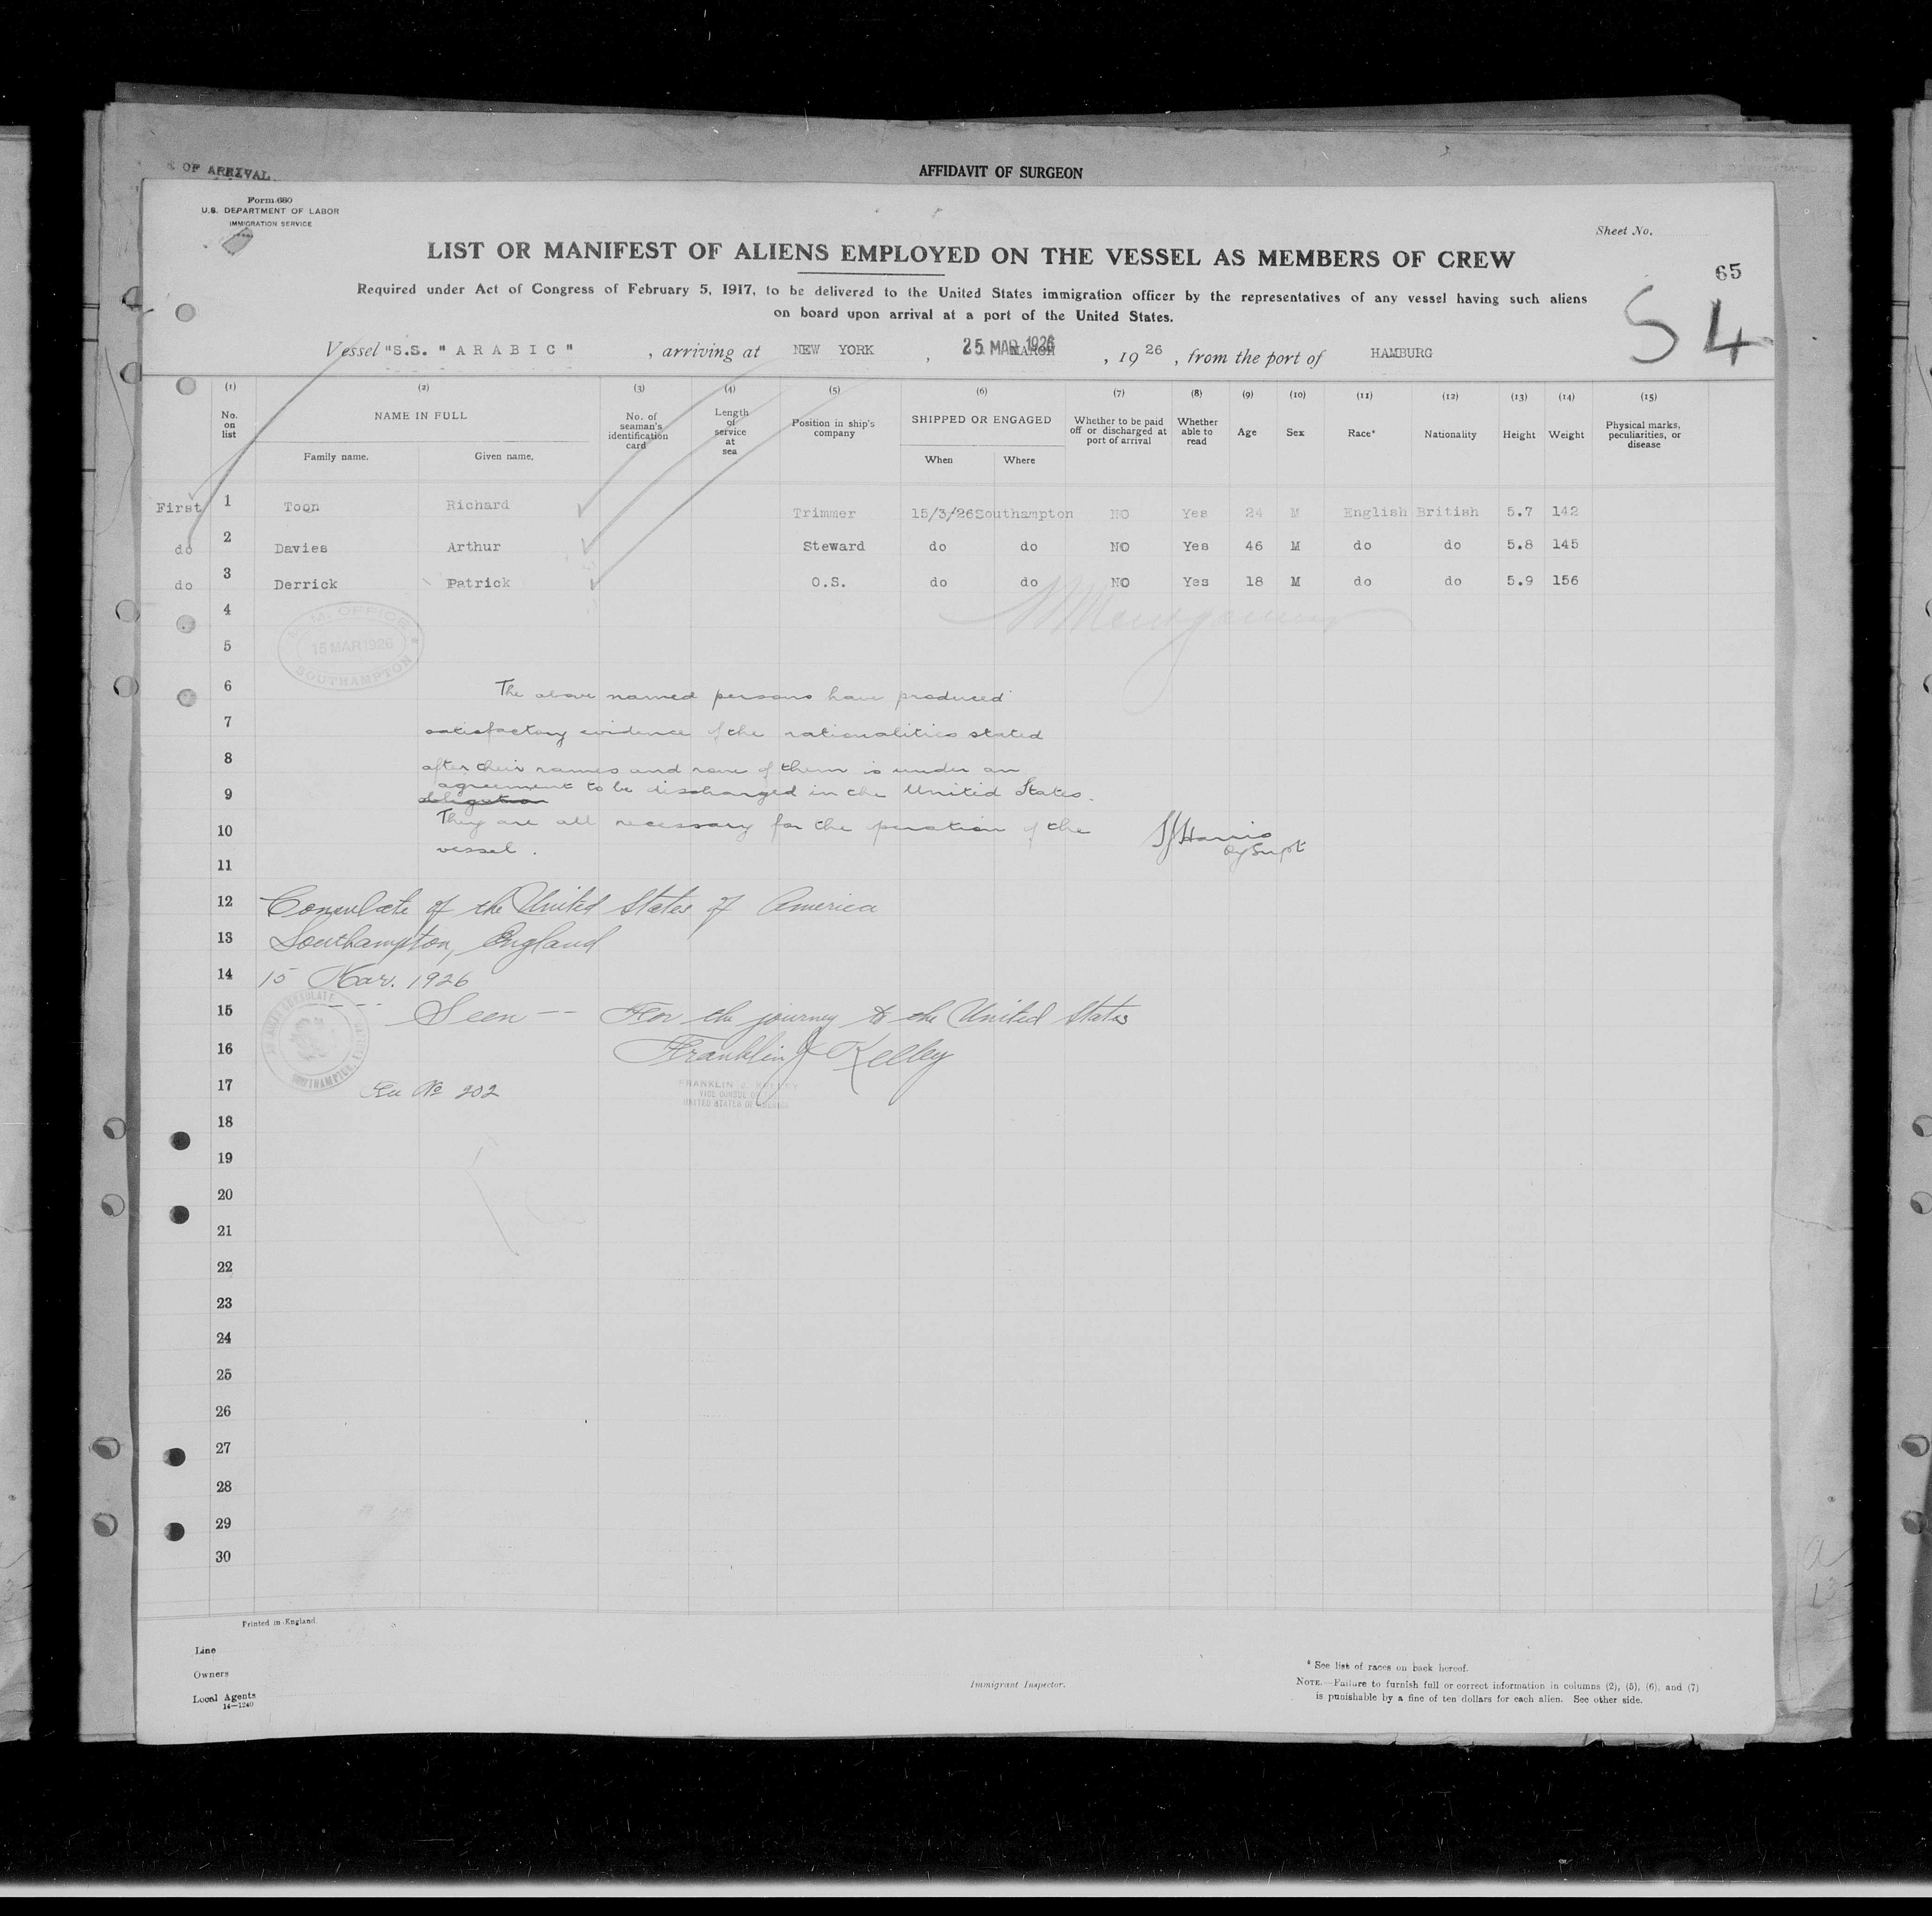 OF ARRIVAL
AFFIDAVIT OF SURGEON
Form 680
U.S. DEPARTMENT OF LABOR
IMMIGRATION SERVICE
Sheet No.
LIST OR MANIFEST OF ALIENS EMPLOYED ON THE VESSEL AS MEMBERS OF CREW
65
Required under Act of Congress of February 5, 1917, to be delivered to the United States immigration officer by the representatives of any vessel having such aliens
on board upon arrival at a port of the United States.
54
Vessel "S.S. "ARABIC", arriving at NEW YORK, 25 MAR 1926 MARCH, 1926, from the port of HAMBURG
(1) (2) (3) (4) (5) (6) (7) (8) (9) (10) (11) (12) (13) (14) (15)
No. on list
NAME IN FULL
Family name. Given name.
No. of seaman's identification card
Length of service at sea
Position in ship's company
SHIPPED OR ENGAGED
When Where
Whether to be paid off or discharged at port of arrival
Whether able to read
Age
Sex
Race*
Nationality
Height
Weight
Physical marks, peculiarities, or disease
First 1 Toon Richard Trimmer 15/3/26 Southampton NO Yes 24 M English British 5.7 142
do 2 Davies Arthur Steward do do NO Yes 46 M do do 5.8 145
do 3 Derrick Patrick O.S. do do NO Yes 18 M do do 5.9 156
4
M. M. OFFICE
15 MAR 1926
SOUTHAMPTON
5
6 The above named persons have produced
7 satisfactory evidence of the nationalities stated
8 after their names and none of them is under an
agreement to be discharged in the United States.
9 obligation
10 They are all necessary for the peration of the
vessel.
Harris
Dy Supt
11
12 Consulate of the United States of America
13 Southampton, England
14 15 Mar. 1926
15 Seen -- For the journey to the United States
16 Franklin J Kelley
17 No 202
FRANKLIN J. KELLEY
VICE CONSUL OF
UNITED STATES OF AMERICA
AMERICAN CONSULATE
SOUTHAMPTON,
18
19
20
21
22
23
24
25
26
27
28
29
30
Printed in England.
Line
Owners
Local Agents
14—1240
Immigrant Inspector.
* See list of races on back hereof.
NOTE.—Failure to furnish full or correct information in columns (2), (5), (6), and (7)
is punishable by a fine of ten dollars for each alien. See other side.